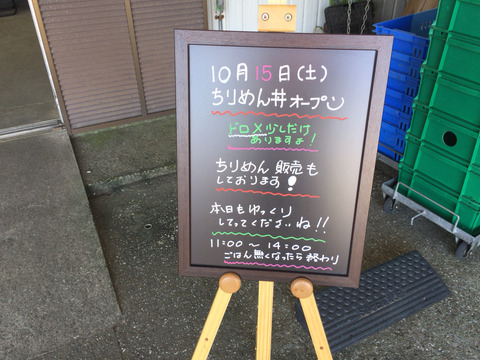 10月15日(土)
ちりめん丼オープン
ドロメ少しだけ
ありますよ!
ちりめん 販売も
しております!
本日もゆっくり
してってくださいね!!
11:00〜14:00
ごはん無くなったら終わり